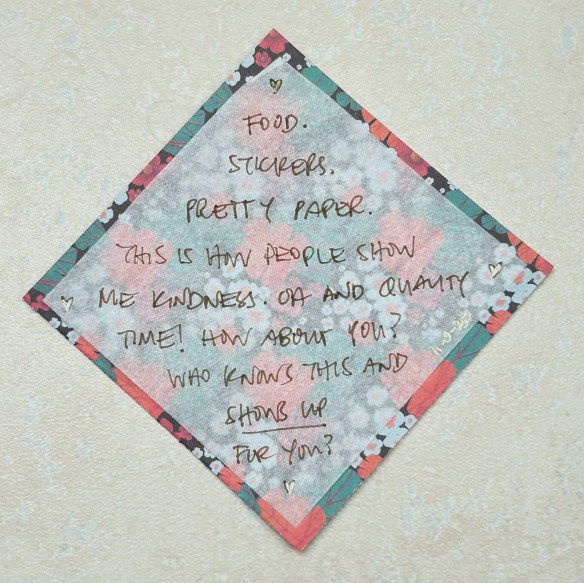 FOOD.
STICKERS.
PRETTY PAPER.
THIS IS HOW PEOPLE SHOW
ME KINDNESS. OH AND QUALITY
TIME! HOW ABOUT YOU?
WHO KNOWS THIS AND
SHOWS UP
FOR YOU?